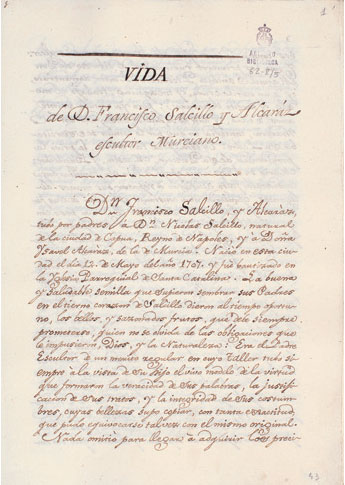 1
VIDA
de D. Francisco Salcillo y Alcaráz
escultor Murciano.
Dn. Francisco Salcillo, y Alcaráz,
tubo por padres á Dn. Nicolas Salcillo, natural
de la ciudad de Capua, Reyno de Napoles, y á Doña
Ysavel Alcaráz, de la de Murcia. Nació en esta ciu-
dad el dia 12, de Mayo del año 1707, y fue bautizado en
la Yglesia Parroquial de Santa Catalina. La buena
y saludable semilla que supieron sembrar sus Padres
en el tierno corazon de Salcillo dieron al tiempo oportu-
no, los bellos, y sazonados frutos, que debe siempre
prometerse, quien no se olvida de las obligaciones que
le impusieron Dios, y la Naturaleza. Era el Padre
Escultor de un merito regular en cuyo taller tubo si-
empre a la vista de su hijo el vivo modelo de la virtud
que formaron la veracidad de sus palabras, la justifi-
cacion de sus tratos, y la integridad de sus costum-
bres, cuyas bellezas supo copiar, con tanta exactitud,
que pudo equivocarse tal vez con el mismo original.
Nada omitio para llegar á adquirir los preci-